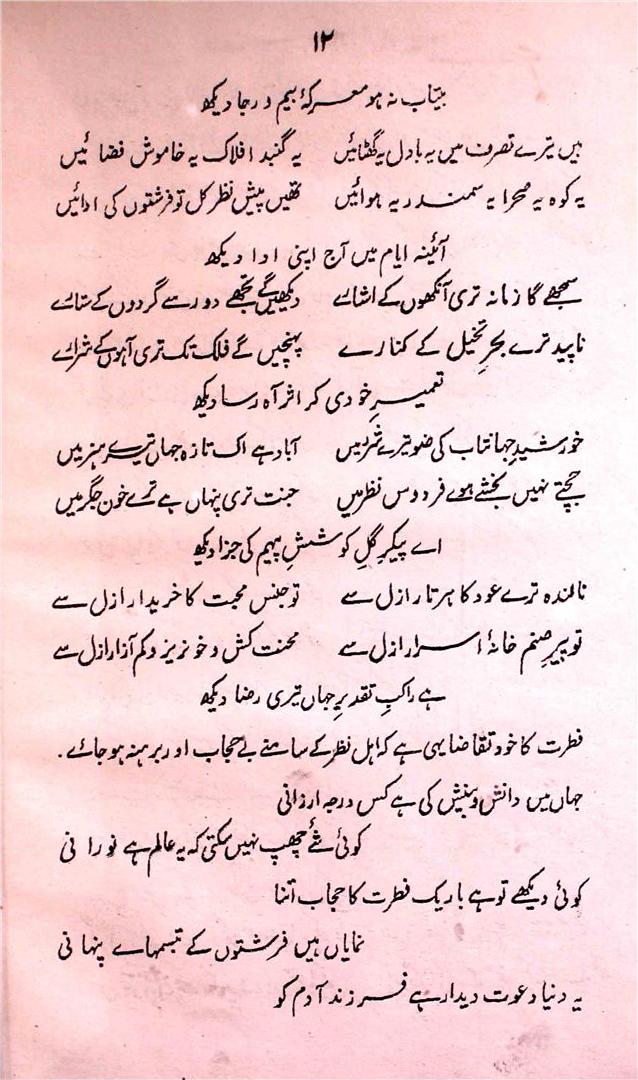 ۱۲
بیتاب نہ ہو معرکۂ بیم و رجا دیکھ
ہیں تیرے تصرف میں یہ بادل یہ گھٹائیں یہ گنبد افلاک یہ خاموش فضائیں
یہ کوہ یہ صحرا یہ سمندر یہ ہوائیں تھیں پیش نظر کل تو فرشتوں کی ادائیں
آئینہ ایام میں آج اپنی ادا دیکھ
سمجھے گا زمانہ تری آنکھوں کے اشارے دیکھیں گے تجھے دور سے گردوں کے ستارے
ناپید ترے بحرِ تخیل کے کنارے پہنچیں گے فلک تک تری آہوں کے شرارے
تعمیرِ خودی کر اثر آہ رسا دیکھ
خورشید جہانتاب کی ضو تیرے شرر میں آباد ہے اک تازہ جہاں تیرے ہنر میں
جچتے نہیں بخشے ہوے فردوس نظر میں جنت تری پنہاں ہے ترے خون جگر میں
اے پیکرِ گل کوششِ پیہم کی جزا دیکھ
نالندہ ترے عود کا ہر تار ازل سے تو جنس محبت کا خریدار ازل سے
تو پیرِ صنم خانۂ اسرار ازل سے محنت کش و خونریز و کم آزار ازل سے
ہے راکبِ تقدیرِ جہاں تیری رضا دیکھ
فطرت کا خود تقاضا یہی ہے کہ اہل نظر کے سامنے بے حجاب اور برہنہ ہو جائے۔
جہاں میں دانش و بینش کی ہے کس درجہ ارزانی
کوئی شے چھپ نہیں سکتی کہ یہ عالم ہے نورانی
کوئی دیکھے تو ہے باریک فطرت کا حجاب اتنا
نمایاں ہیں فرشتوں کے تبسمہاے پنہانی
یہ دنیا دعوت دیدار ہے فرزند آدم کو